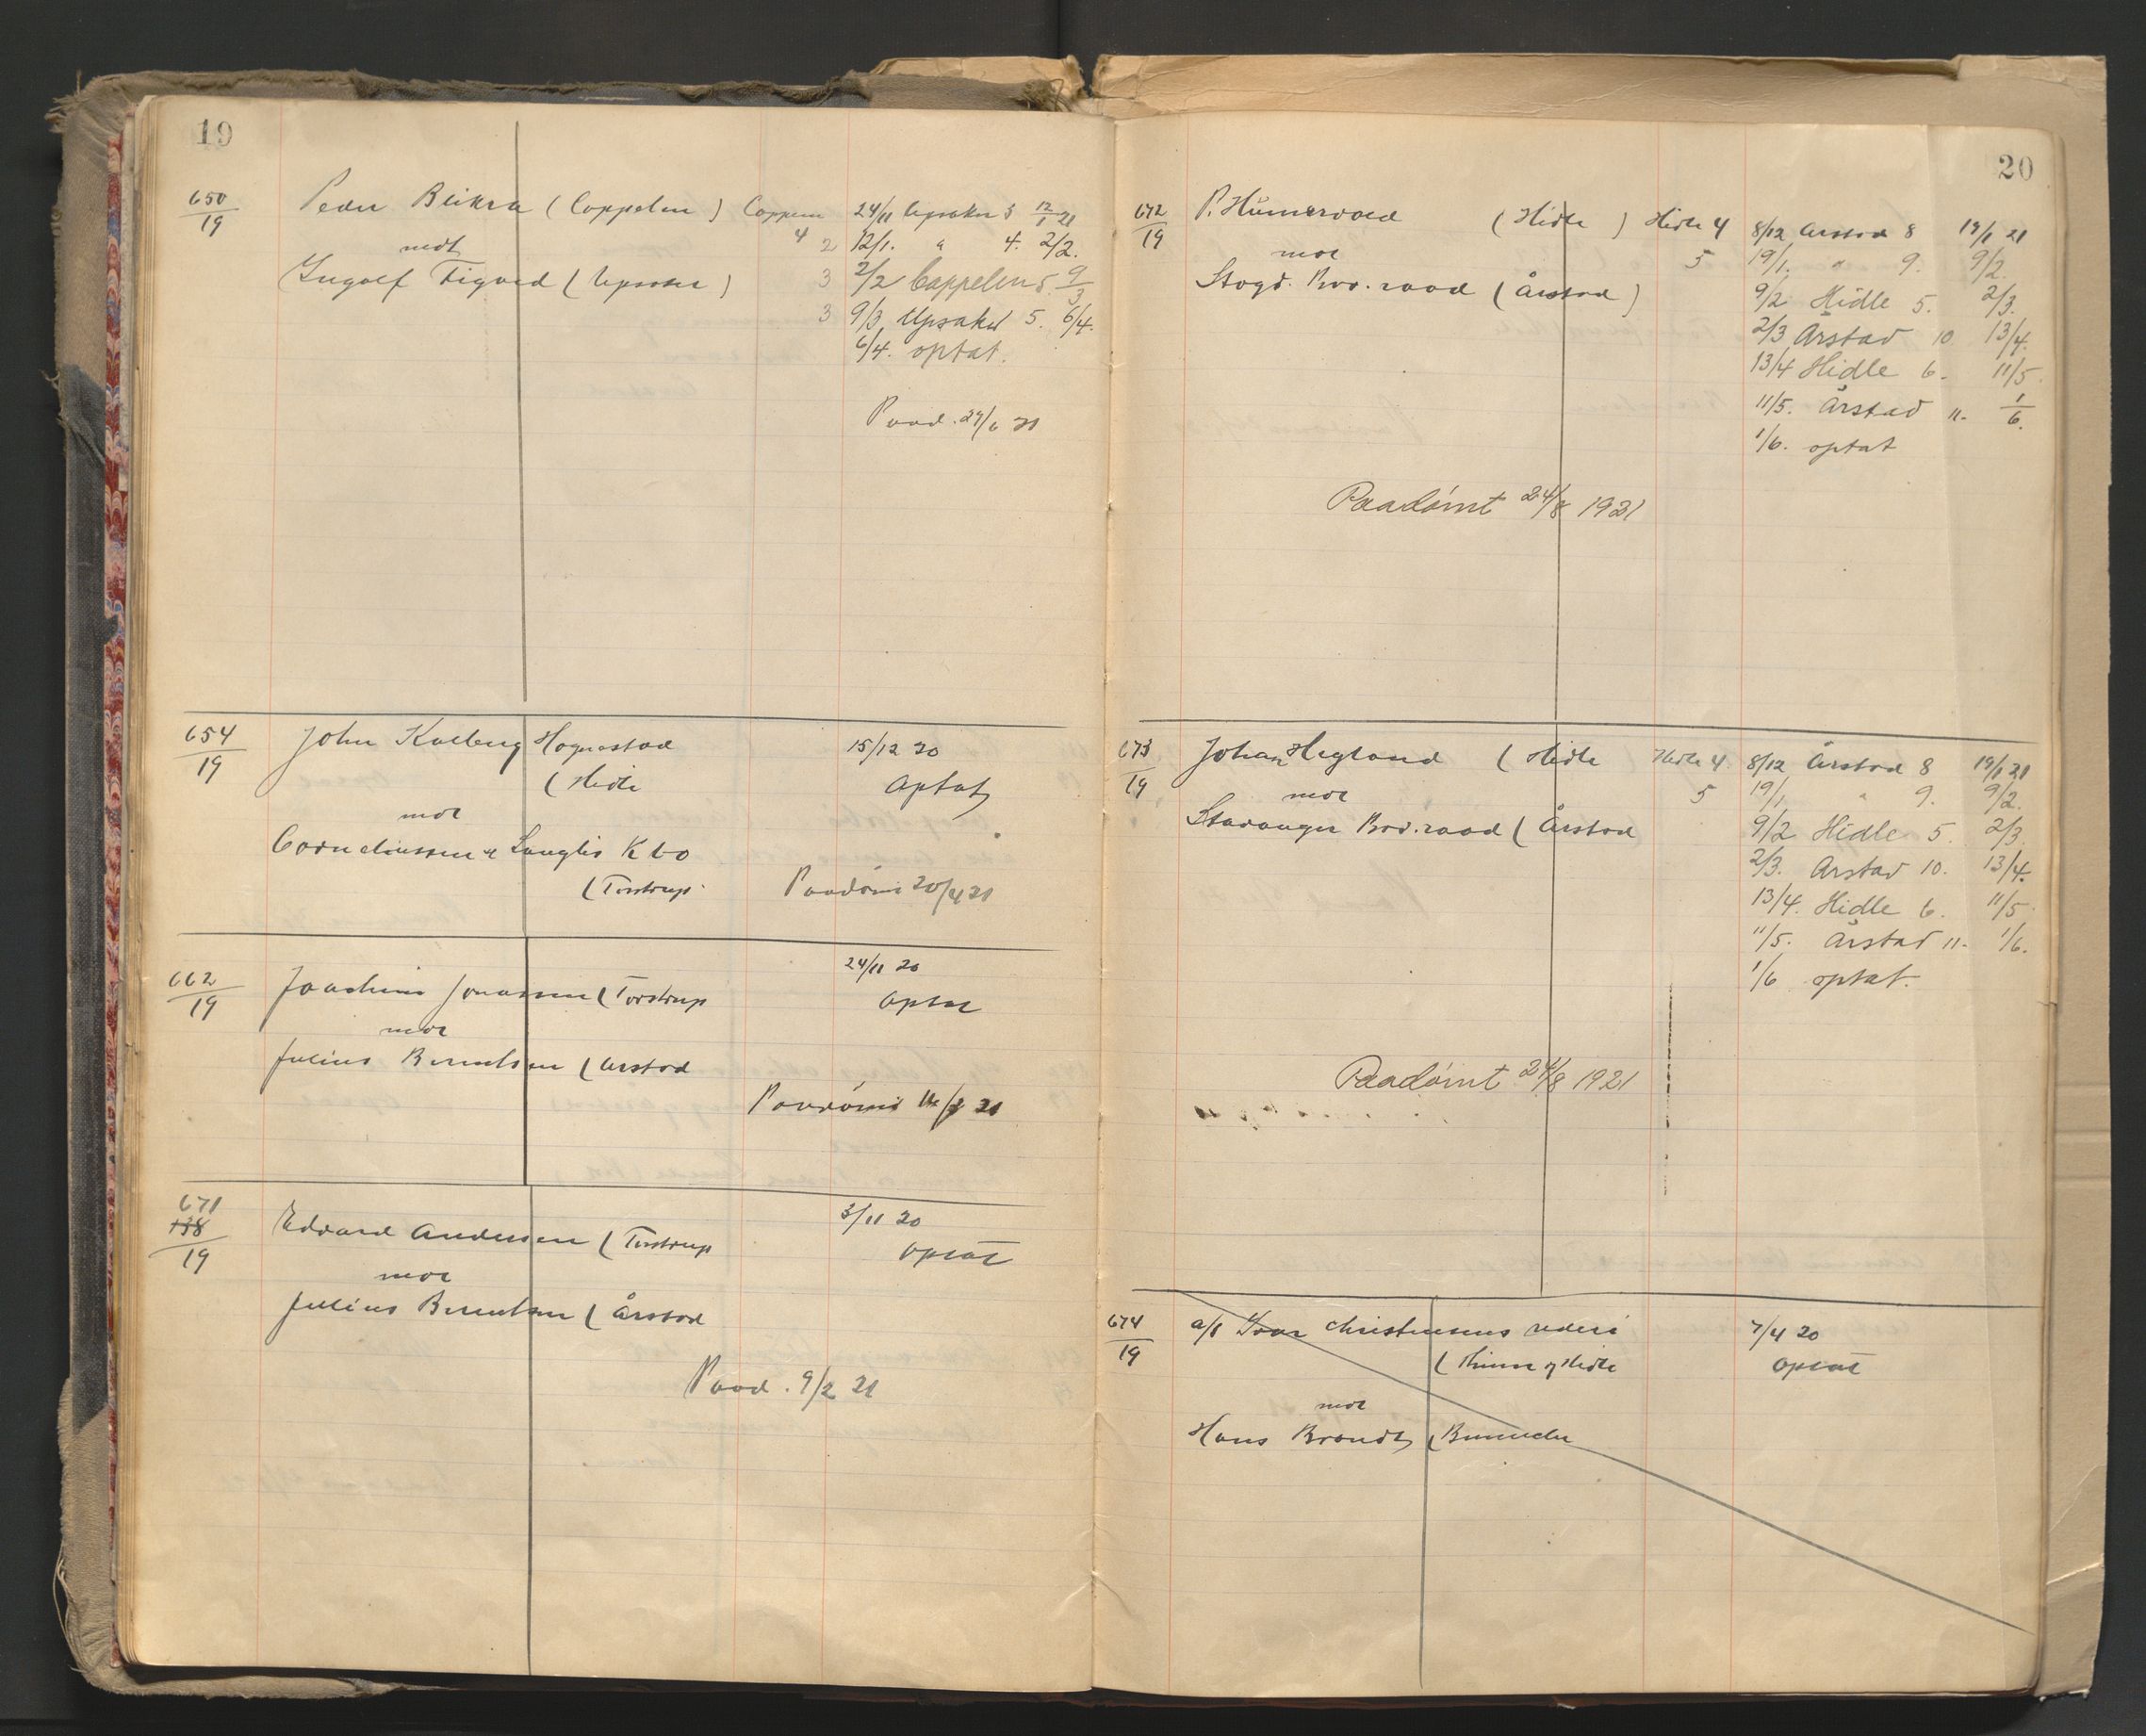 19
650
19
Peder Bleikra (Cappelen) Cappelen
4
24/11 Upsaker 3 12/1 21
mot
2 12/1. " 4. 2/2.
Ingolf Tigvad (Upsaker)
3 2/2 Cappelen 5. 9/3
3 9/3 Upsaker 5. 6/4.
6/4. optat.
Paad. 29/6 21
654
19
John Kolberg Hognestad
(Hidle
15/12 20
optat
mot
Corneliussen & Langlis Kto
(Torstrup.
Paadømt 20/4 21
662
19
Joachim Jonassen (Torstrup
24/11 20
optat
mot
Julius Berentsen (Årstad
Paadømt 16/2 21
671
138
19
Edvard Andersen (Torstrup
3/11 20
optat
mot
Julius Berentsen (Årstad
Paad. 9/2 21
20
672
19
(Hidle) Hidle 4
8/12 Årstad 8 19/1 21
mot
5 19/1. " 9. 9/2.
Prov. raad (Årstad)
9/2 Hidle 5. 2/3.
2/3 Årstad 10 13/4.
13/4 Hidle 6. 11/5.
11/5. Årstad 11. 1/6.
1/6. optat
Paadømt 24/8 1921
673
19
Johan Hegland (Hidle Hidle 4
8/12 Årstad 8 19/1 21
mot
5 19/1 " 9. 9/2.
Stavanger Prov. raad (Årstad
9/2 Hidle 5. 2/3
2/3. Årstad 10. 13/4.
13/4. Hidle 6. 11/5
11/5. Årstad 11. 1/6.
1/6 optat.
Paadømt 24/8 1921
674
19
a/s Ivar Christensens rederi
7/4 20
optat
mot
Hans Brandt